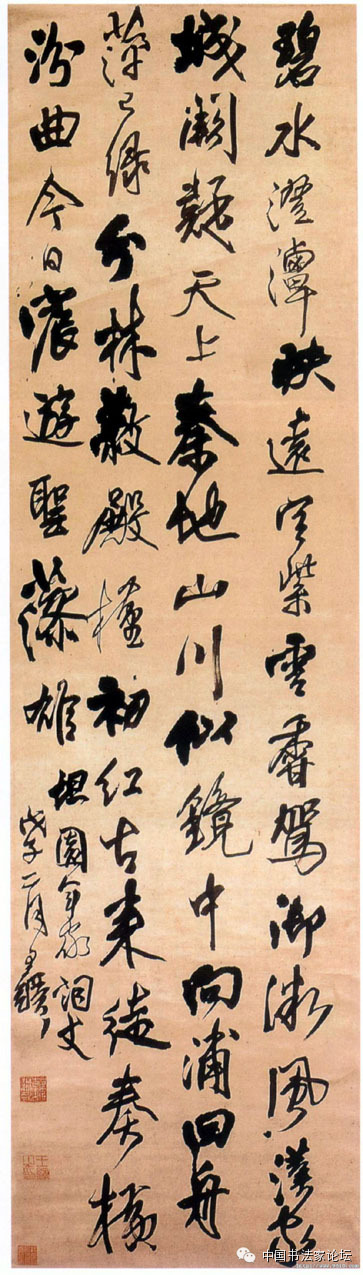 碧水澄潭映遠空紫雲香駕御微風漢家
城闕疑天上秦地山川似鏡中向浦回舟
萍已綠分林蔽殿槿初紅古來徒奏橫
汾曲今日宸遊聖藻雄 坦園年家詞丈
戊子二月王鐸
中国书法家论坛